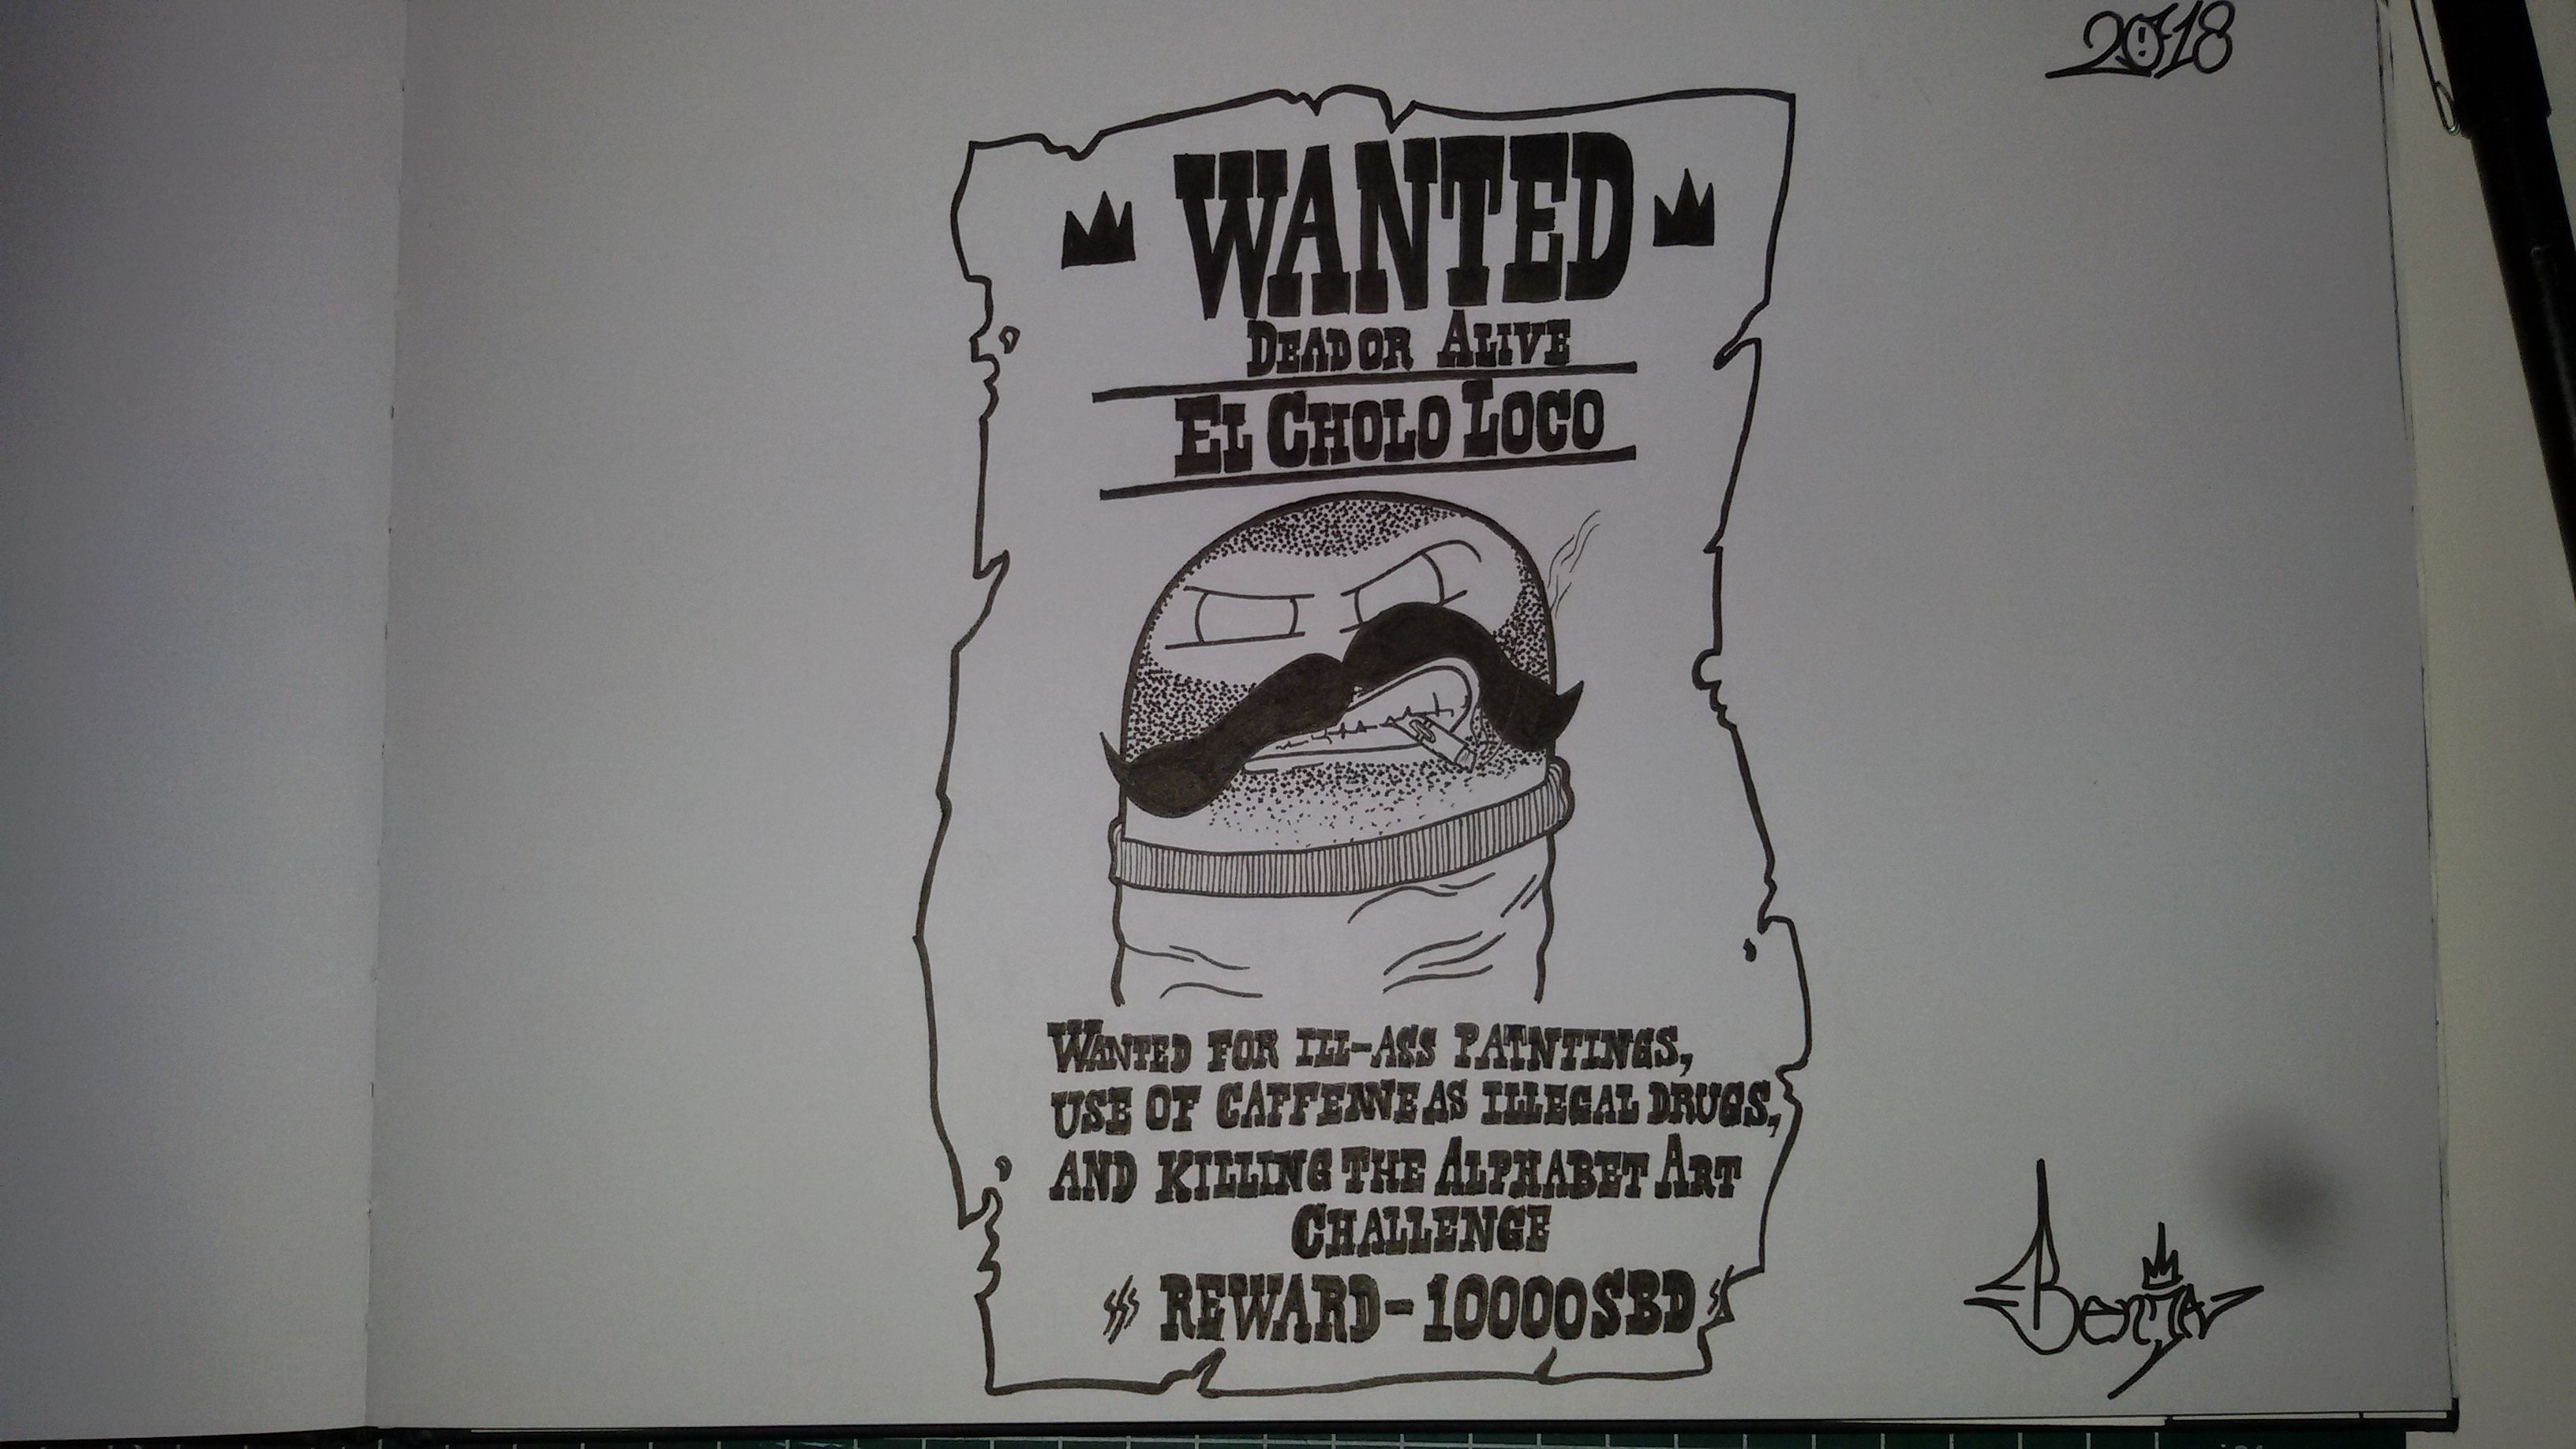 2018
WANTED
DEAD OR ALIVE
EL CHOLO LOCO
WANTED FOR ILL-ASS PAINTINGS,
USE OF CAFFEINE AS ILLEGAL DRUGS,
AND KILLING THE ALPHABET ART
CHALLENGE
REWARD-10000SBD